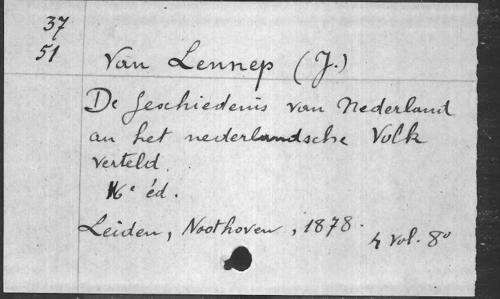 37
51
Van Lennep (J.)
De geschiedenis van Nederland
an het nederlandsche Volk
verteld.
éd.
Leiden, Noothoven, 1878.
4 vol. 8°